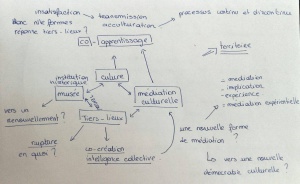 insatisfaction
transmission
acculturation
processus continu et discontinu
donc rôle formes
réponse tiers-lieux ?
co - apprentissage
territoires
institution
historique
culture
musée
tension
médiation
culturelle
= médiation
= implication
= expérience
= médiation expérientielle
vers un
renouvellement ?
Tiers-lieux
rupture
en quoi ?
co-création
intelligence collective
une nouvelle forme
de médiation ?
↳ vers une nouvelle
démocratie culturelle ?